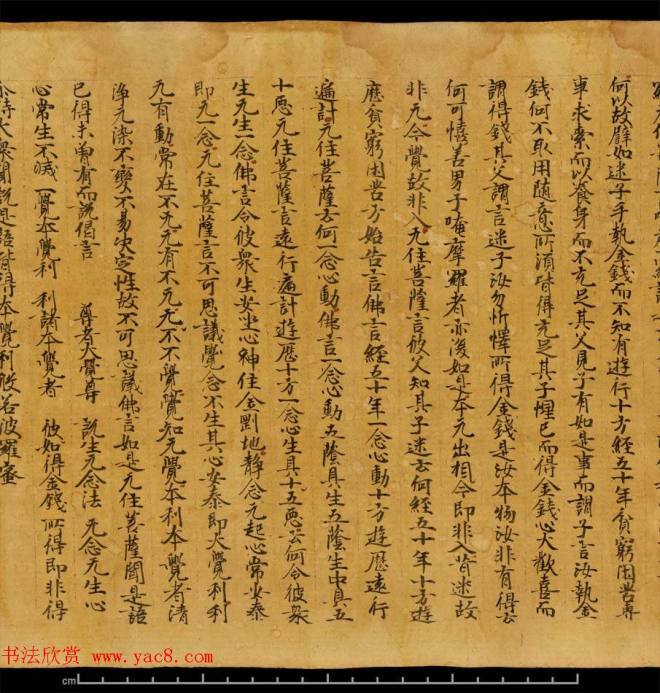 何以故譬如迷子手執金錢而不知有遊行十方經五十年貧窮困苦專
事求索而以養身而不充足其父見子有如是事而謂子言汝執金
錢何不取用隨意所須皆得充足其子惺已而得金錢心大歡喜而
謂得錢其父謂言迷子汝勿忻懌所得金錢是汝本物汝非有得云
何可憘善男子唵摩羅者亦復如是本无出相今即非入昔迷故
非无今覺故非入无住菩薩言彼父知其子迷云何經五十年十方遊
歷貧窮困苦方始告言佛言經五十年一念心動十方遊歷遠行
遍計无住菩薩云何念心動佛言一念心動五蔭具生五蔭生中具五
十惡无住菩薩言遠行遍計遊歷十方一念心生具十五惡云何令彼衆
生无生一念佛言令彼衆生安坐心神住金剛地靜念无起心常安泰
即无一念无住菩薩言不可思議覺念不生其心安泰即大覺利利
无有動常在不无无有不无无不不覺覺知无覺本利本覺者清
淨无染不變不易決定性故不可思議佛言如是无住菩薩聞是語
已得未曾有而說偈言 尊者大覺尊 說生无念法 无念无生心
心常生不滅 一覺本覺利 利諸本覺者 彼如得金錢 所得即非得
尒時大衆聞說是語皆得本覺利般若波羅蜜
书法欣赏 www.yac8.com
cm